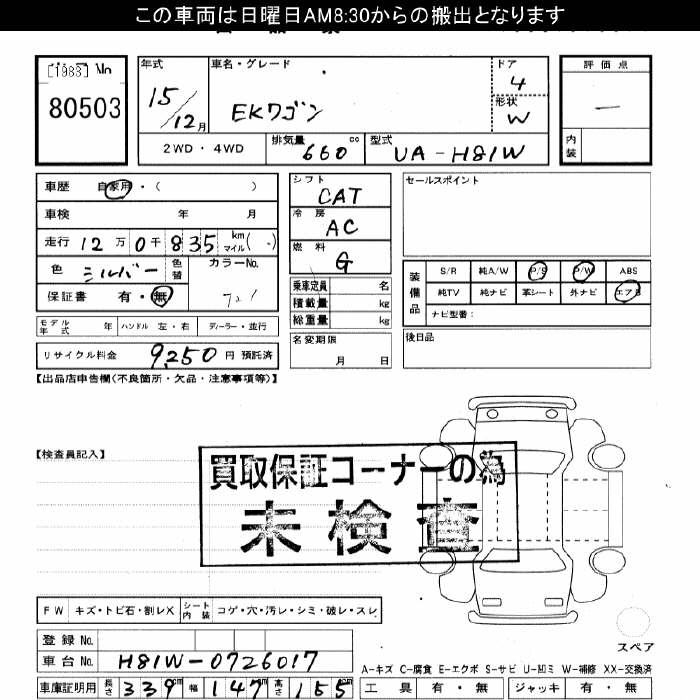 この車両は日曜日AM8:30からの搬出となります
[1983] No
80503
年式 15/12月
車名・グレード EKワゴン
ドア 4
形状 W
評価点 —
内装
2WD・4WD
排気量 660 cc
型式 UA-H81W
車歴 自家用・( )
車検 年 月
走行 12万0千835 km マイル( )
色 シルバー 色替
カラーNo.
保証書 有・無
モデル年式 年 ハンドル 左・右 ディーラー・並行
リサイクル料金 9,250 円 預託済
シフト CAT
冷房 AC
燃料 G
乗車定員 名
積載量 kg
総重量 kg
名変期限
月 日
セールスポイント
装備品
S/R 純A/W P/S P/W ABS
純TV 純ナビ 革シート 外ナビ エアB
ナビ型番:
後日品
【出品店申告欄(不良箇所・欠品・注意事項等)】
【検査員記入】
買取保証コーナーの為
未検査
FW キズ・トビ石・割レX シート内装 コゲ・穴・汚レ・シミ・破レ・スレ
スペア
登録No.
車台No. H81W-0726017
車庫証明用 長さ 339 cm 幅 147 cm 高さ 155 cm
A-キズ C-腐食 E-エクボ S-サビ U-凹ミ W-補修 XX-交換済
工具 有・無 ジャッキ 有・無